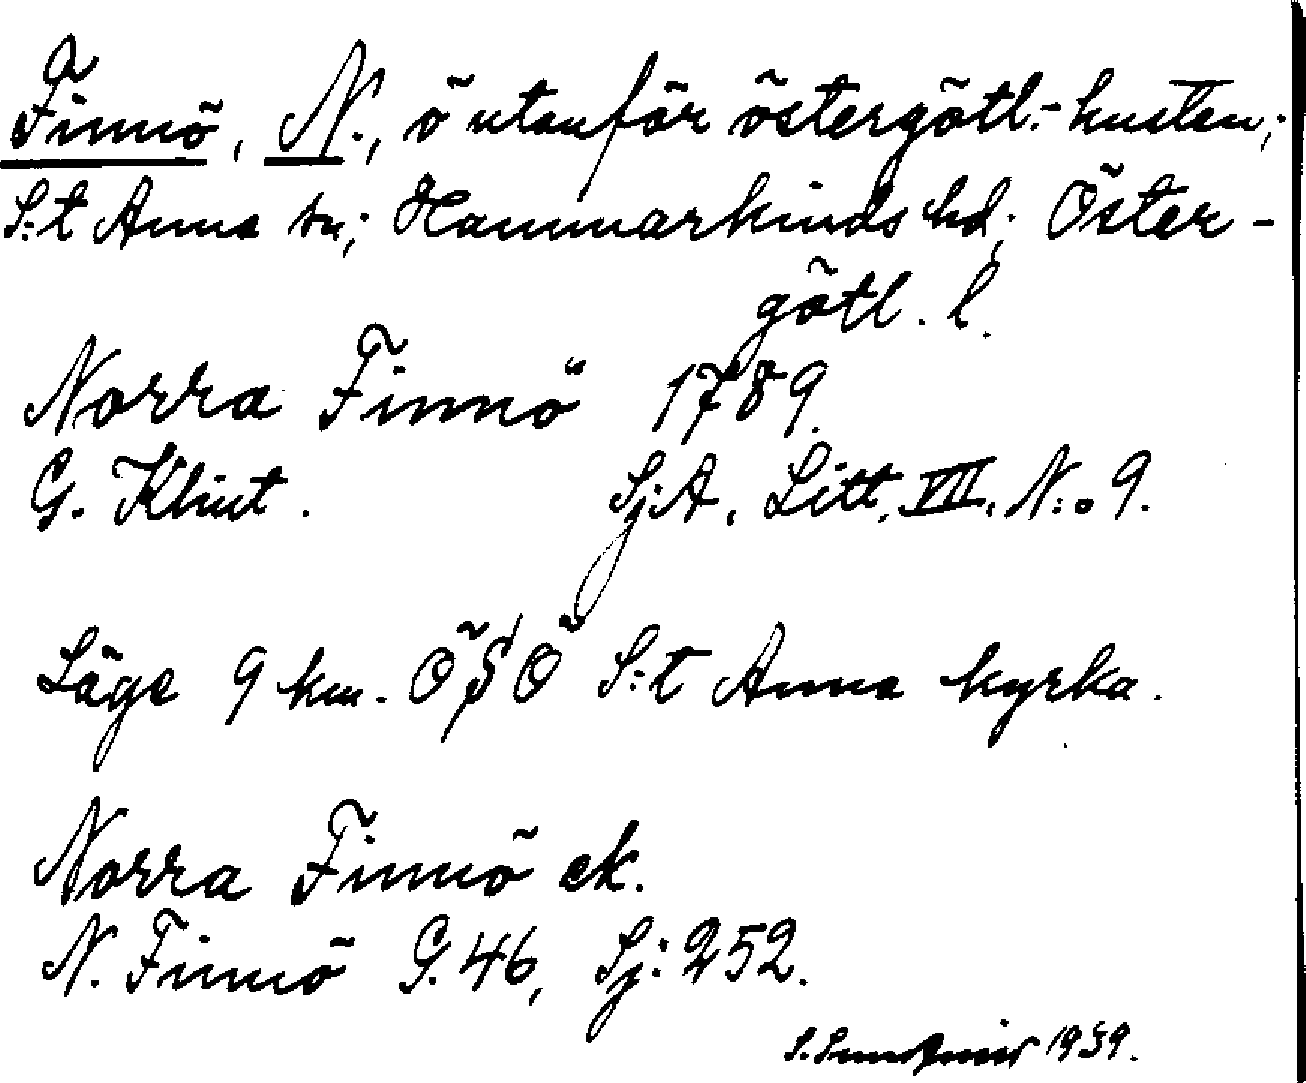 Finnö, N., ö utanför östergötl.-kusten;
S:t Anna sn; Hammarkinds hd; Öster-
götl. l.
Norra Finnö 1789.
G. Klint. Sj:A, Litt. VII. N:o 9.
Läge 9 km. ÖSÖ S:t Anna kyrka.
Norra Finnö ek.
N. Finnö G. 46, Sj: 252.
S. 1939.